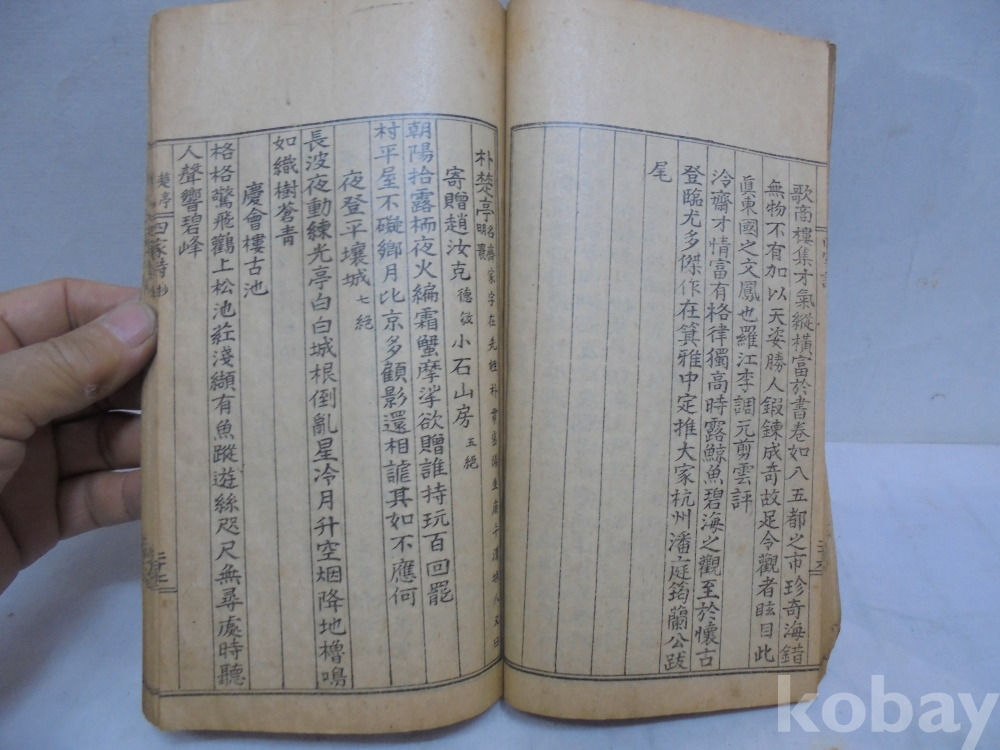 歌商樓集才氣縱橫富於書卷如入五都之市珍奇海錯
無物不有加以天姿勝人鍜鍊成奇故足令觀者眩目此
眞東國之文鳳也羅江李調元剪雲評
冷齋才情富有格律獨高時露鯨魚碧海之觀至於懷古
登臨尤多傑作在箕雅中定推大家杭州潘庭筠蘭公跋
尾
朴楚亭
寄贈趙汝克 小石山房 五絕
朝陽拾露栖夜火編霜蟹摩挲欲贈誰持玩百回罷
村平屋不礙鄉月比京多顧影還相謔其如不應何
夜登平壤城 七絕
長波夜動練光亭白白城根倒亂星冷月升空烟降地櫓鳴
如織樹蒼青
慶會樓古池
格格驚飛鸛上松池莊淺纈有魚蹤遊絲咫尺無尋處時聽
人聲響碧峰
楚亭 四家詩抄
kobay